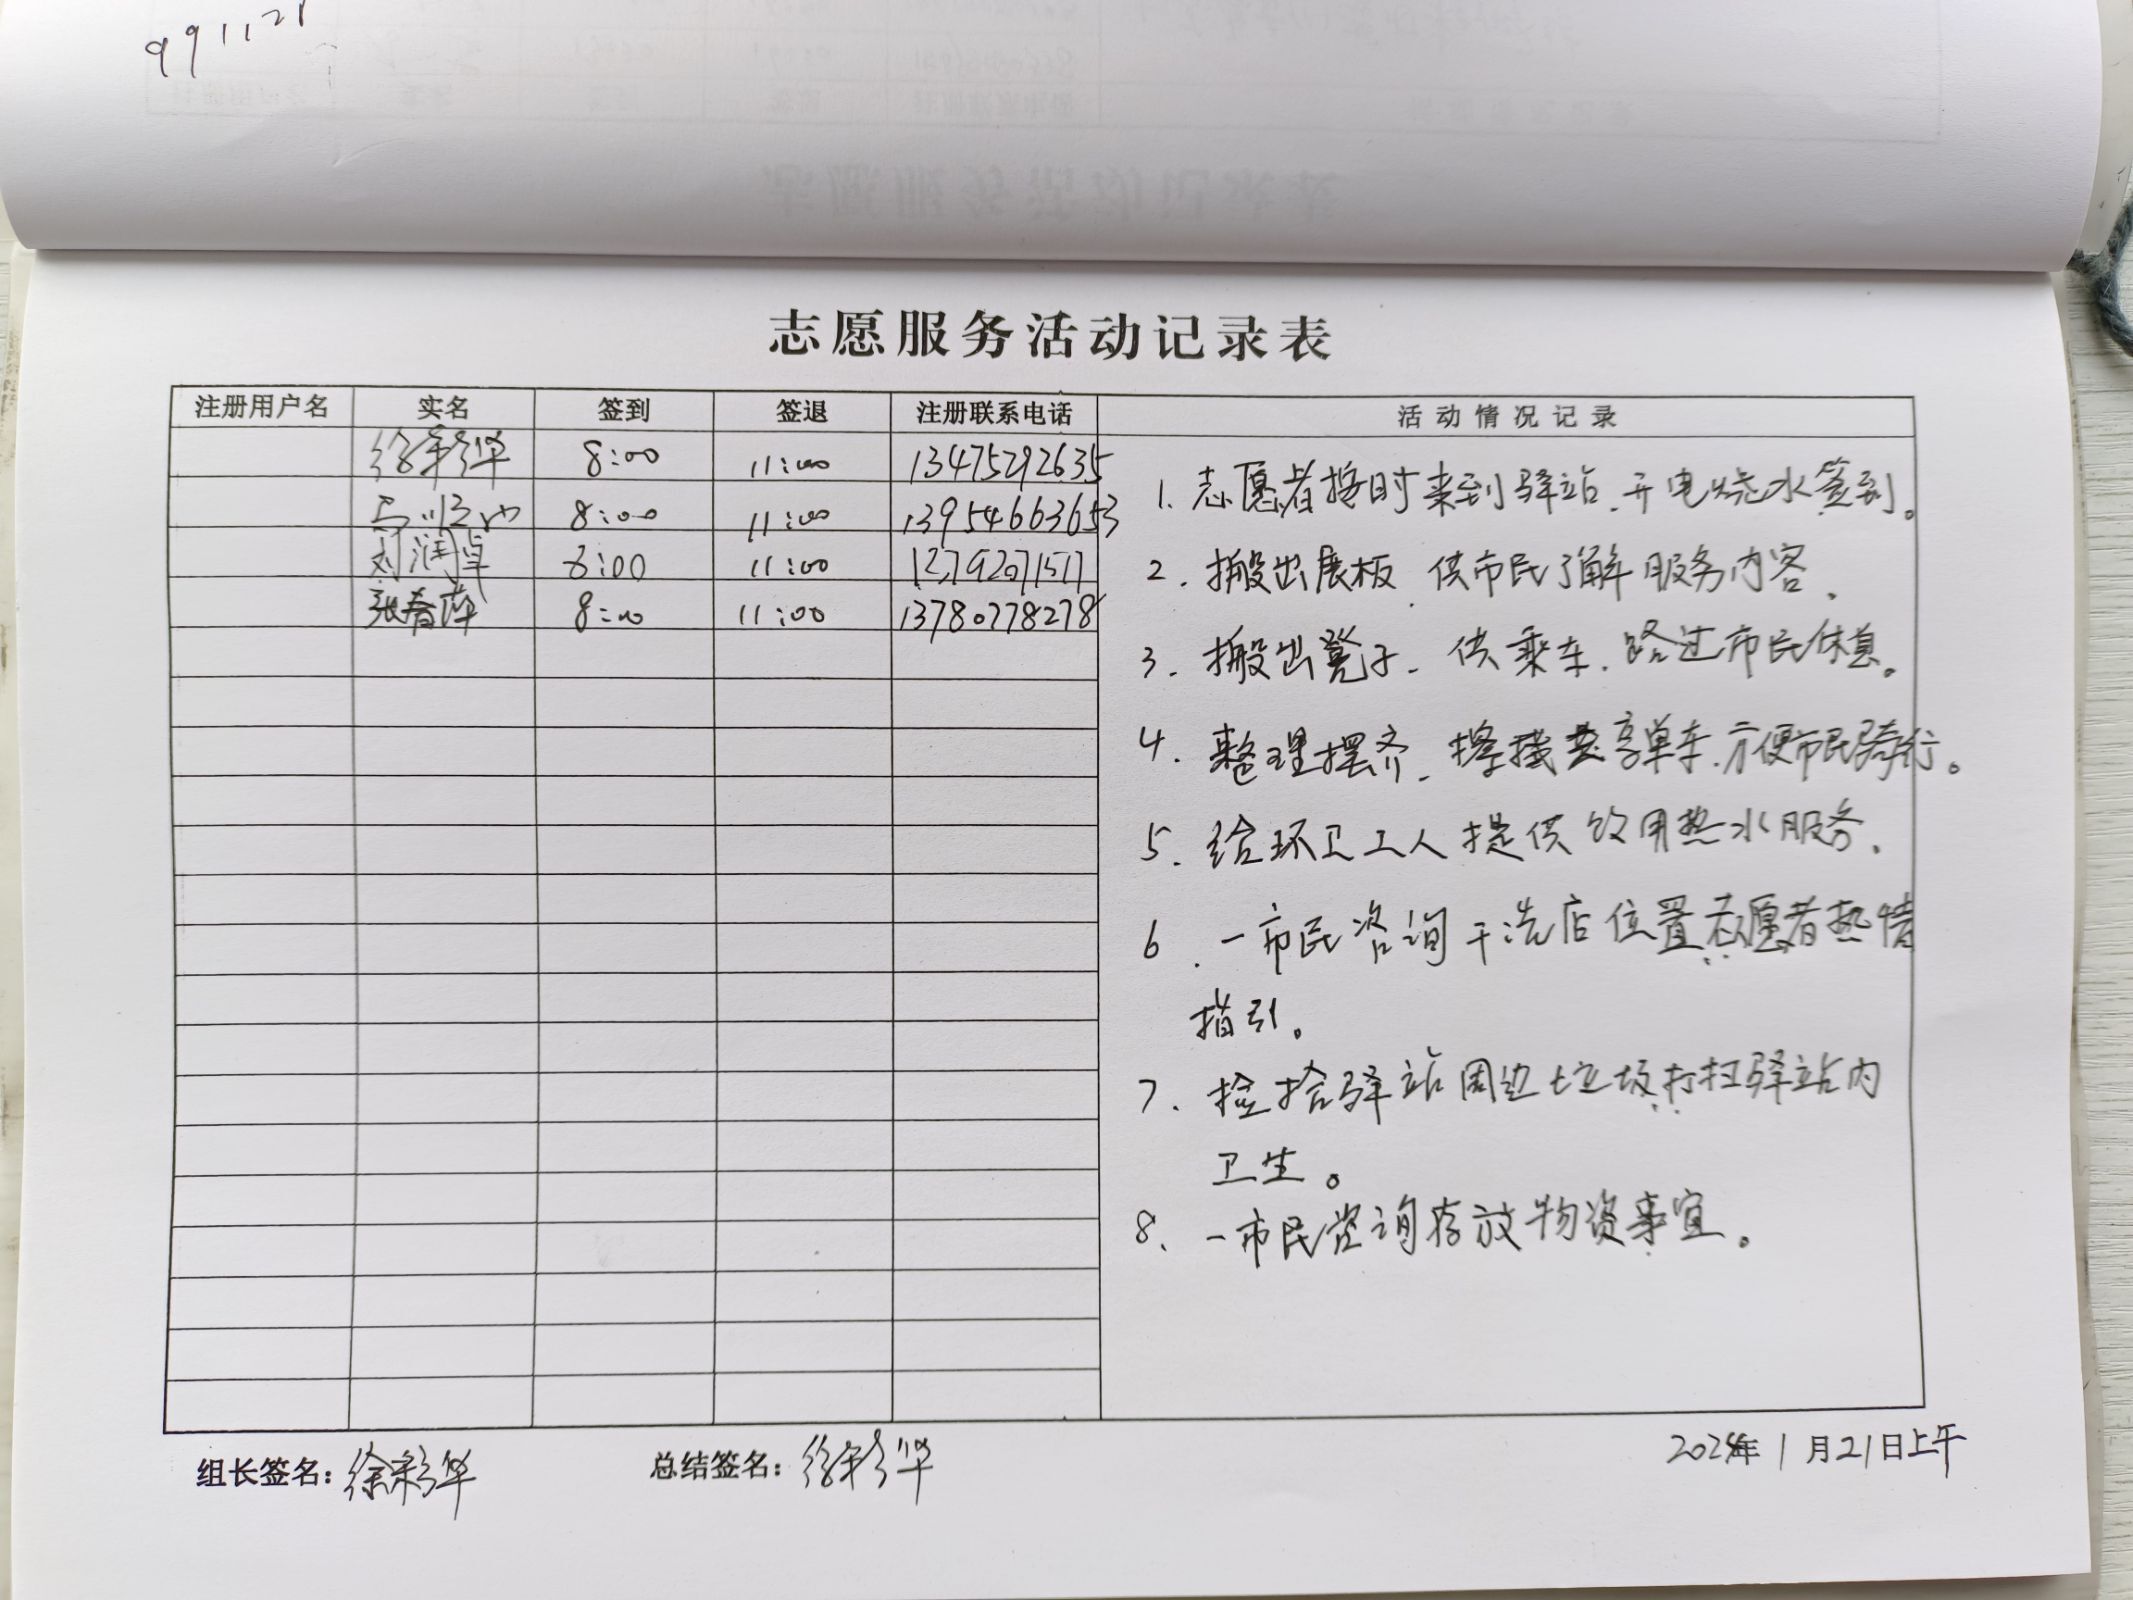 991121
志愿服务活动记录表
注册用户名 实名 签到 签退 注册联系电话 活动情况记录
徐彩华 8:00 11:00 13475292635
8:00 11:00 13954663653
刘润卓 8:00 11:00
张春萍 8:00 11:00 13780778278
1. 志愿者按时来到驿站.开电烧水签到。
2. 搬出展板.供市民了解服务内容.
3. 搬出凳子.供乘车.路过市民休息。
4. 整理摆齐.擦拭共享单车.方便市民骑行。
5. 给环卫工人提供饮用热水服务.
6. 一市民咨询干洗店位置志愿者热情
指引。
7. 捡拾驿站周边垃圾打扫驿站内
卫生。
8、一市民咨询存放物资事宜。
组长签名：徐彩华 总结签名：徐彩华 2024年1月21日上午